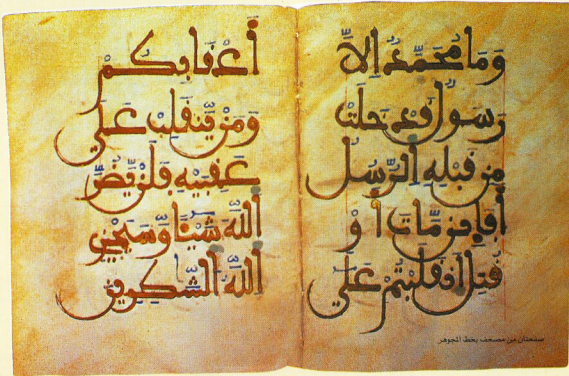 وَمَا مُحَمَّدٌ اِلاَّ
رَسُولٌ قَدْ خَلَتْ
مِن قَبْلِهِ اِلرُّسُلُ
أَفَإِين مَّاتَ أَوْ
قُتِلَ اَنقَلَبْتُمْ عَلَى
أَعْقَابِكُمْ
وَمَنْ يَّنقَلِبْ عَلَى
عَقِبَيْهِ فَلَنْ يَّضُرَّ
اَللَّهَ شَيْئًا وَسَيَجْزِي
اِللَّهُ اُلشَّكِرِينَ
صفحتان من مصحف بخط المجوهر